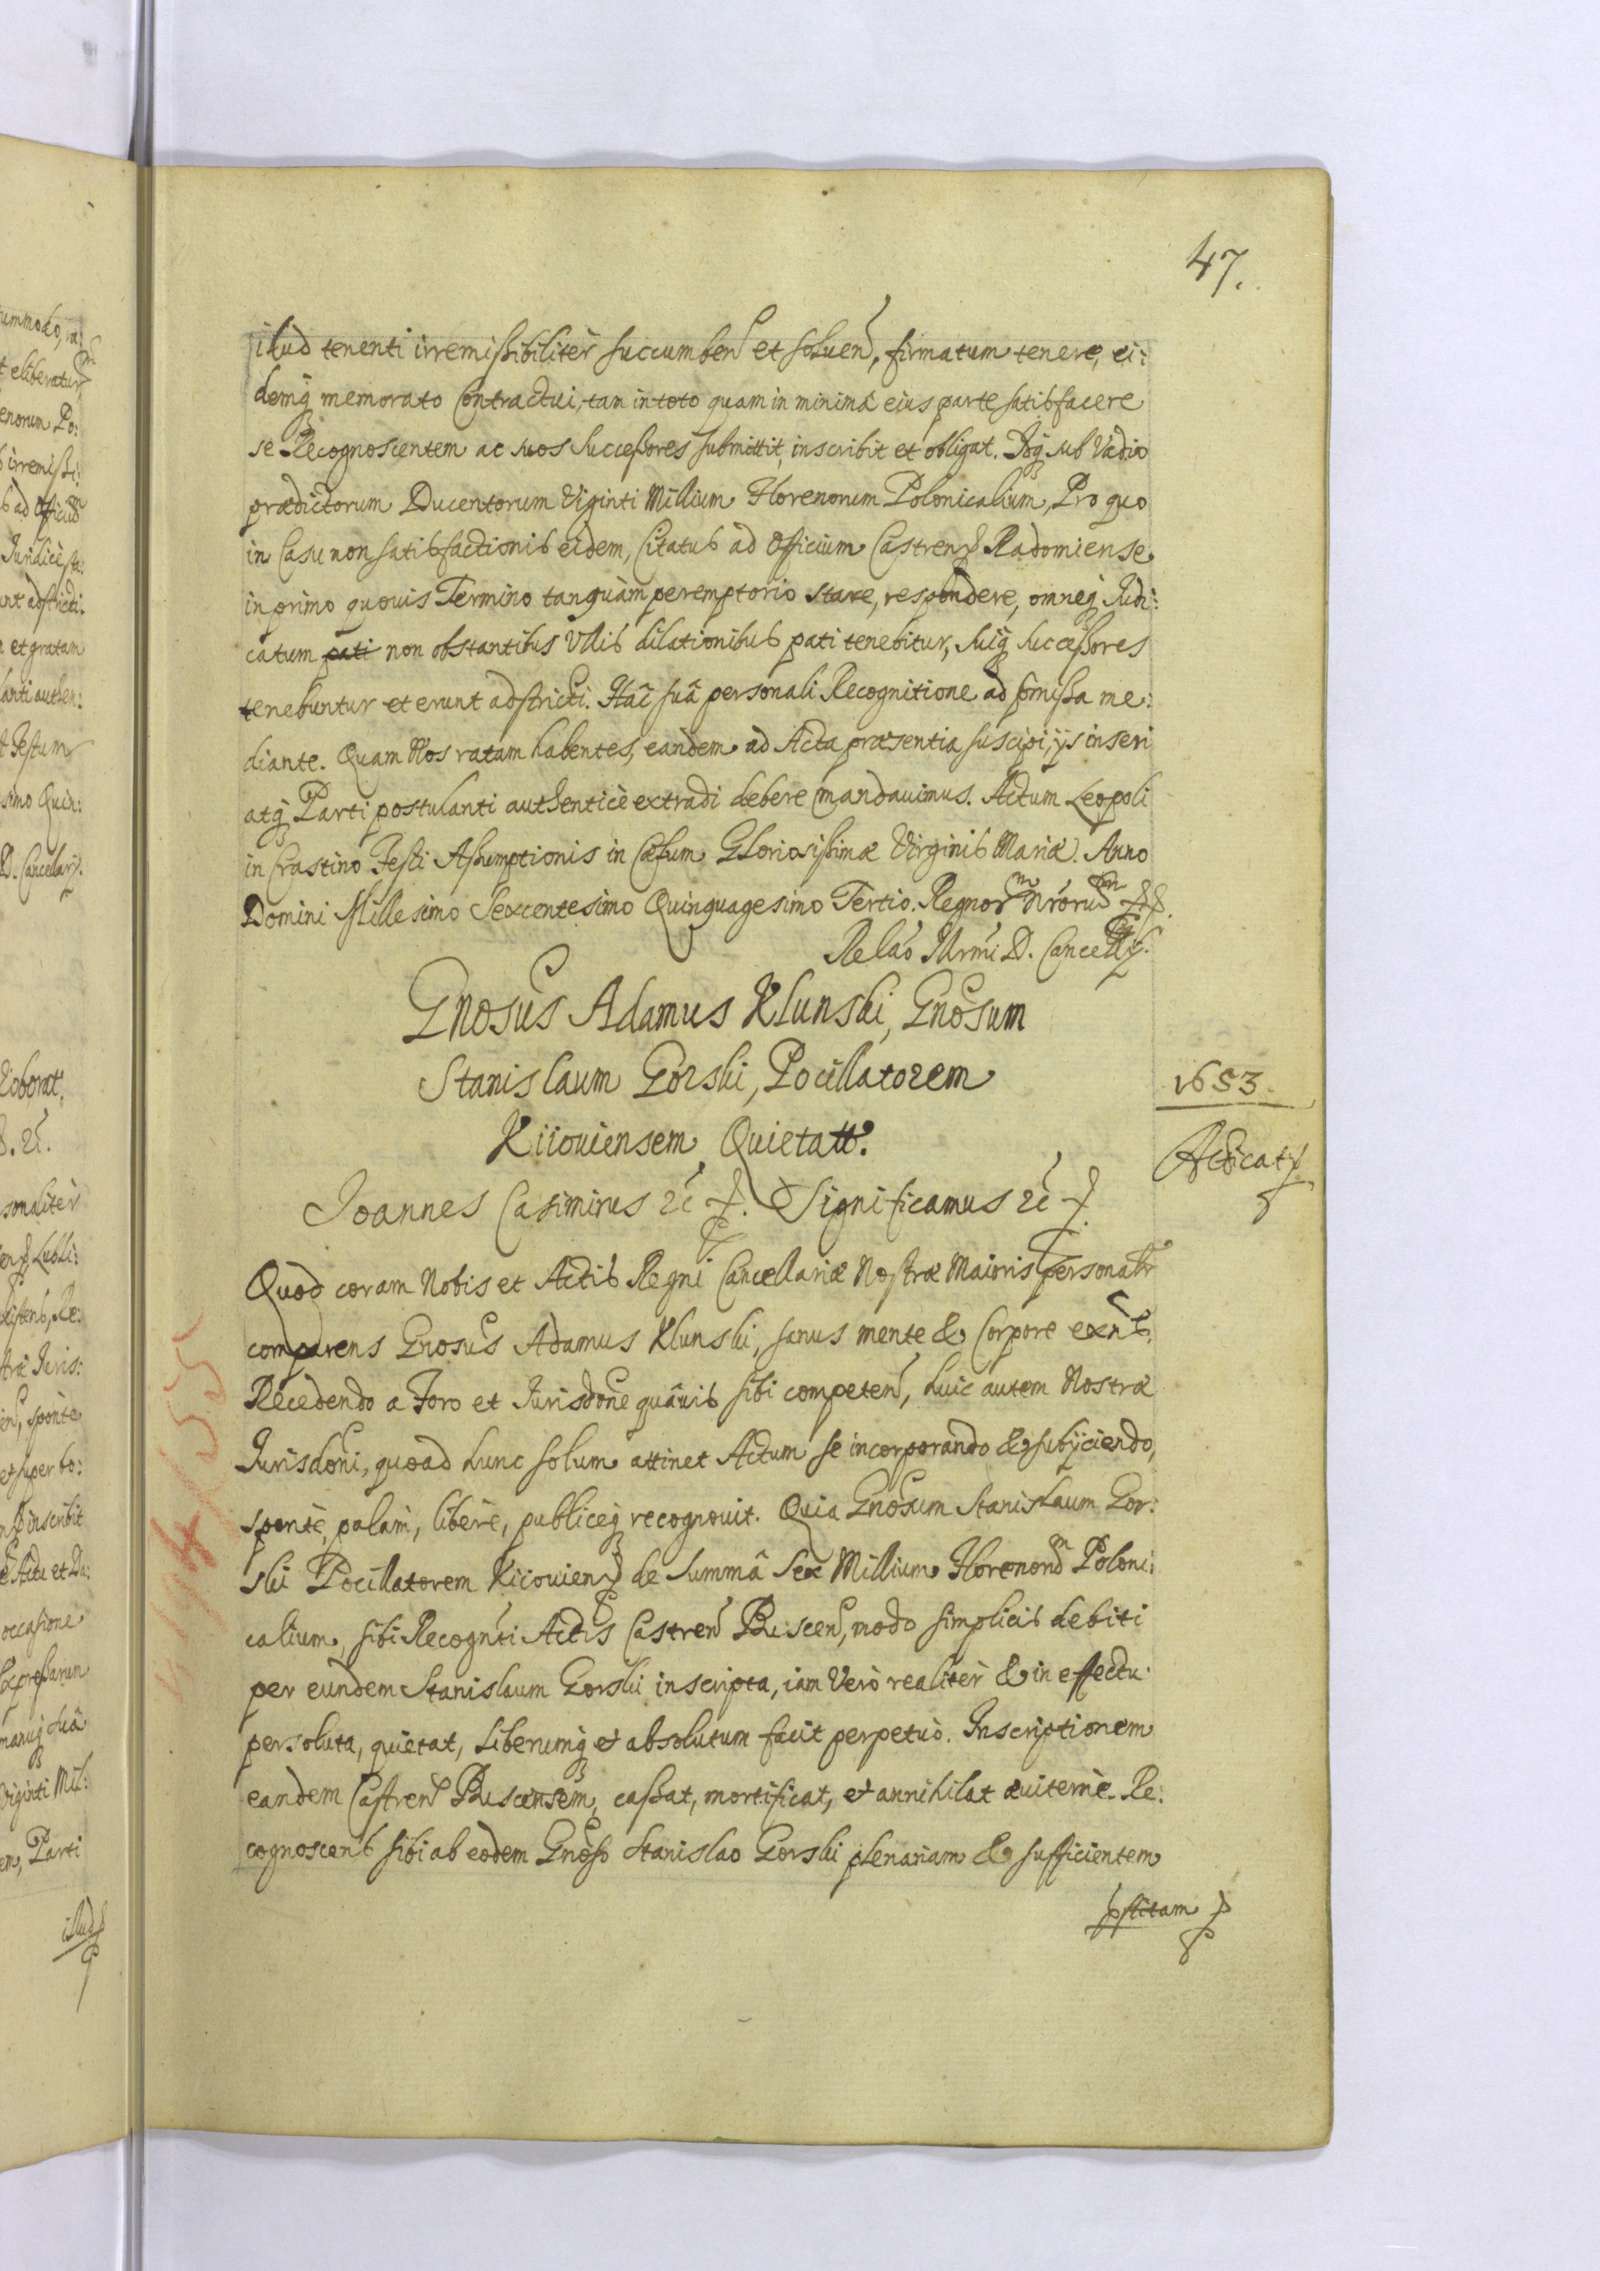 47.
illud tenenti irremissibiliter succumben et soluen, firmatum tenere, ei:
demq memorato Contractui, tam in toto quam in minima eius parte satisfacere
se Recognoscentem ac suos Successores submittit, inscribit et obligat. Idq sub Vadio
prædictorum Ducentorum Viginti Millium Florenorum Polonicalium, Pro quo
in Casu non satisfactionis eidem, Citatus ad Officium Castren Radomiense
in primo quouis Termino tanquàm peremptorio stare, respondere, omneq Judi:
catum pati non obstantibus Vllis dilationibus pati tenebitur, suiq Successores
tenebuntur et erunt adstricti. Hac suâ personali Recognitione ad præmissa me:
diante. Quam Nos ratam habentes, eandem ad Acta præsentia suscipi, ijs inseri
atq Parti postulanti authenticè extradi debere mandauimus. Actum Leopoli
in Crastino Festi Assumptionis in Cælum Gloriosissimæ Virginis Mariæ. Anno
Domini Millesimo Sexcentesimo Quinquagesimo Tertio. Regnor Nrorum
Relao Illrmi D. Cancell.
Gnosus Adamus Klunski, Gnosum
Stanislaum Gorski, Pocillatorem
Kiiouiensem Quietatt.
1653.
Joannes Casimirus etc. Significamus etc.
Quod coram Nobis et Actis Regni Cancellariæ Nostræ Maioris personalr
comparens Gnosus Adamus Klunski, sanus mente & Corpore exns.
Recedendo a Foro et Jurisdone quâuis sibi competen, huic autem Nostræ
Jurisdoni, quoad hunc solum attinet Actum se incorporando & subijciendo,
sponte, palam, liberè, publiceq recognouit. Quia Gnosum Stanislaum Gor:
ski Pocillatorem Kiiouien de Summâ Sex Millium Florenorum Poloni:
calium, sibi Recognti Actis Castren Biscen, modo simplicis debiti
per eundem Stanislaum Gorski inscripta, iam Verò realitèr & in effectu
persoluta, quietat, liberumq et absolutum facit perpetuò. Inscriptionem
eandem Castren Biscensem, cassat, mortificat, et annihilat æuiternè. Re:
cognoscens sibi ab eodem Gnoso Stanislao Gorski plenariam & sufficientem
pstitam